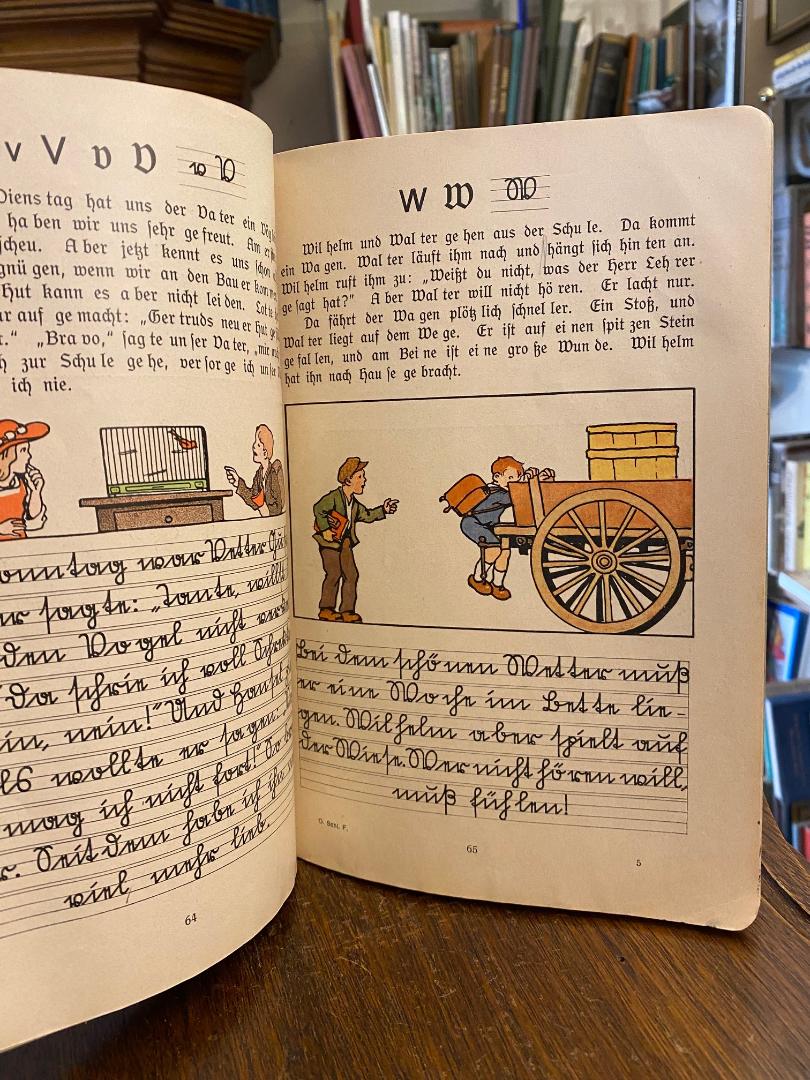 v V v V v V
Diens tag hat uns der Va ter ein
ha ben wir uns sehr ge freut. Am
scheu. A ber jetzt kennt es uns schon
gnü gen, wenn wir an den Bau er
Hut kann es a ber nicht lei den.
auf ge macht: „Ger truds neu er Hut
“ „Bra vo,“ sag te un ser Va ter, „mir
zur Schu le ge he, ver sor ge ich
ich nie.
war Vetter
sagte: „Tante, willst
den Vo gel nicht
Da schrie ich voll
nein!“ Und
wollte er sagen:
mag ich nicht fort!“
Seit dem habe ich ihn
viel mehr lieb.
64
W W W
Wil helm und Wal ter ge hen aus der Schu le. Da kommt
ein Wa gen. Wal ter läuft ihm nach und hängt sich hin ten an.
Wil helm ruft ihm zu: „Weißt du nicht, was der Herr Leh rer
ge sagt hat?“ A ber Wal ter will nicht hö ren. Er lacht nur.
Da fährt der Wa gen plötz lich schnel ler. Ein Stoß, und
Wal ter liegt auf dem We ge. Er ist auf ei nen spit zen Stein
ge fal len, und am Bei ne ist ei ne gro ße Wun de. Wil helm
hat ihn nach Hau se ge bracht.
Bei dem schö nen Wet ter muß
er eine Wo che im Bet te lie-
gen. Wil helm aber spielt auf
der Wiese. Wer nicht hö ren will,
muß füh len!
D. Ben. F.
65
5